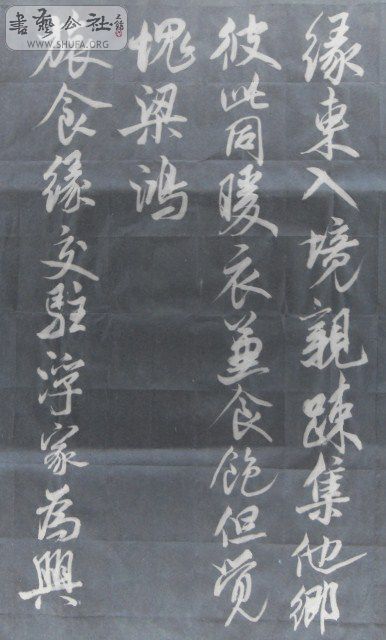 緣東入境親踈集他鄉
彼此同暖衣兼食飽但覺
愧梁鴻
旅食緣交駐浮家為興
書藝公社
WWW.SHUFA.ORG